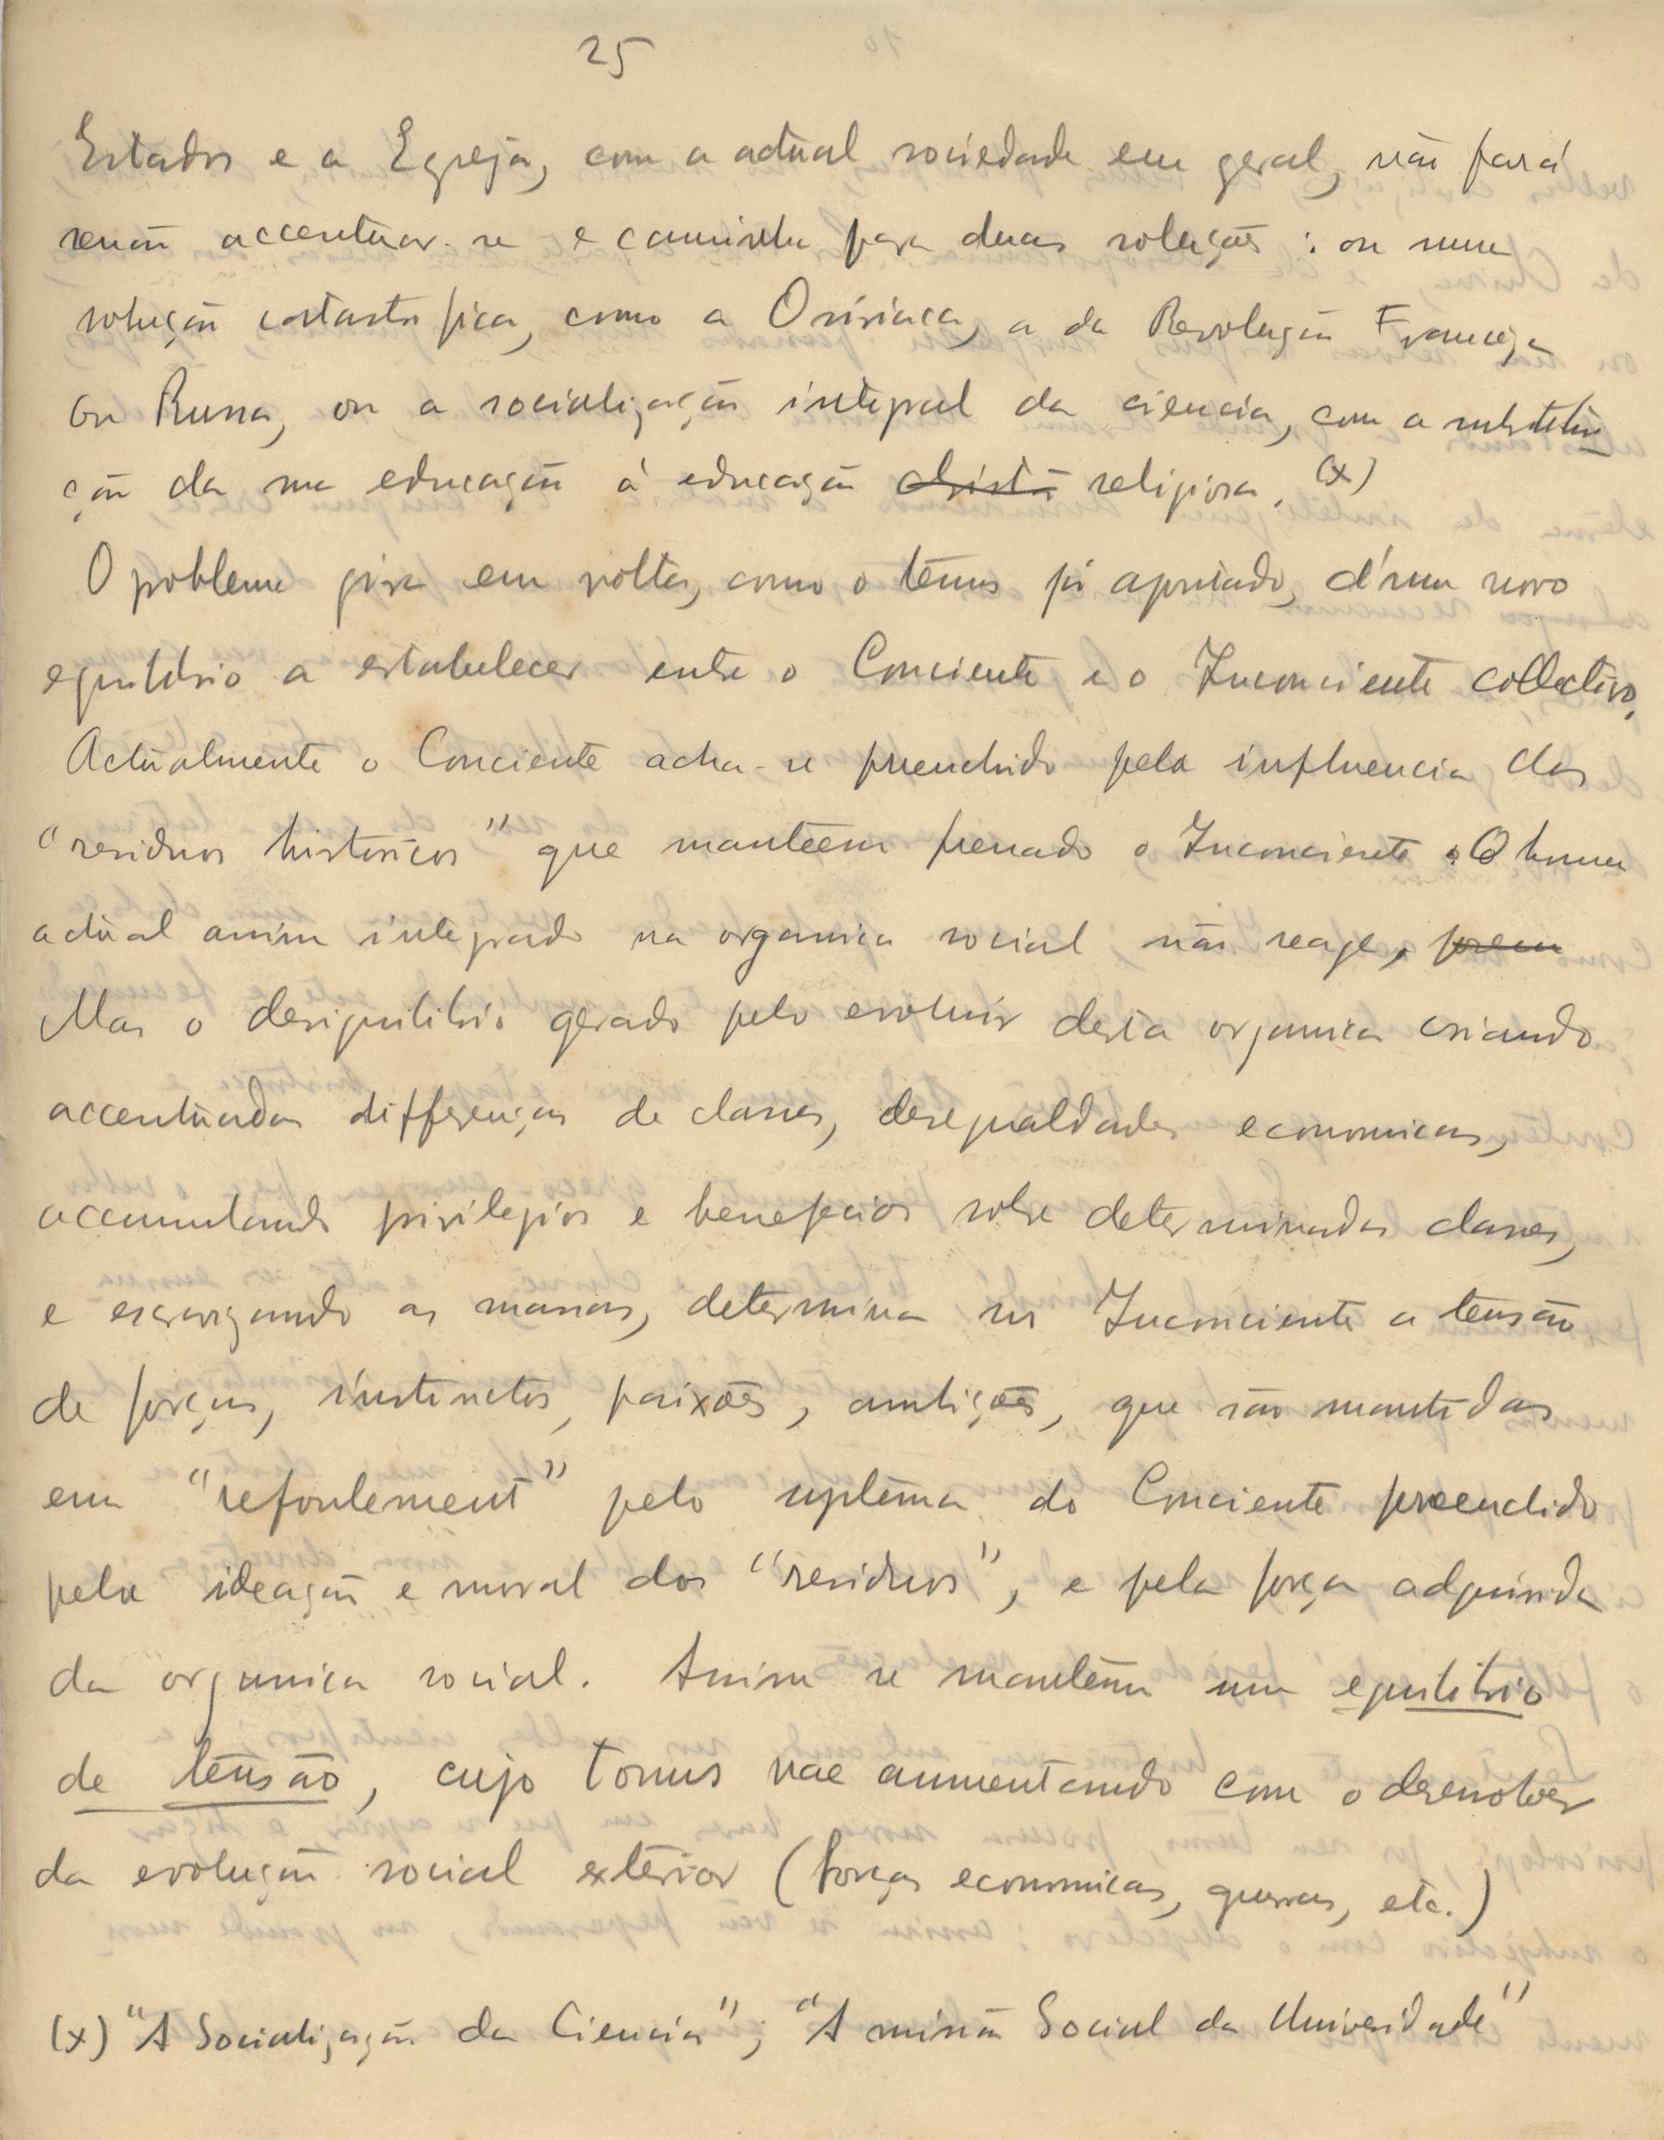 25
Estados e a Egreja, com a actual sociedade em geral, não fará
senão accentuar-se e caminha para duas soluções: ou uma
solução catastrofica, como a Osiriaca, a da Revolução Franceza
ou Russa, ou a socialização integral da ciencia, com a substitui
ção da sua educação á educação christã religiosa. (x)
O problema gira em volta, como o temos já apontado, d'um novo
equilibrio a estabelecer entre o Conciente e o Inconciente collectivo.
Actualmente o Conciente acha-se preenchido pela influencia dos
"residuos historicos" que manteem frenado o Inconciente. O homem
actual assim integrado na organica social não reage, porem
Mas o desiquilibrio gerado pelo evoluir desta organica criando
accentuadas differenças de classes, desegualdades economicas,
accumulando privilegios e beneficios sobre determinadas classes,
e escravizando as massas, determina no Inconciente a tensão
de forças, instinctos, paixões, ambições, que são mantidas
em "refoulement" pelo sistema do Conciente preenchido
pela ideação e moral dos "residuos", e pela força adquirida
da organica social. Assim se mantêm um equilibrio
de tensão, cujo tonus vae aumentando com o desenvolver
da evolução social exterior (forças economicas, guerras, etc.)
(x) "A Socialização da Ciencia"; "A missão Social da Universidade"